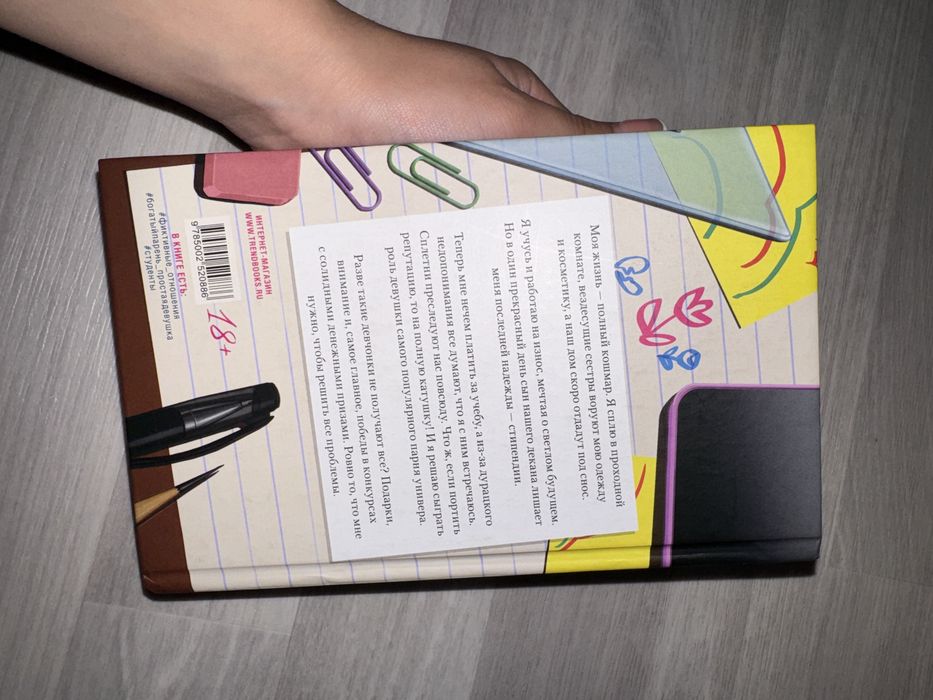 Моя жизнь — полный кошмар. Я сплю в проходной
комнате, вездесущие сестры воруют мою одежду
и косметику, а наш дом скоро отдадут под снос.
Я учусь и работаю на износ, мечтая о светлом будущем.
Но в один прекрасный день сын нашего декана лишает
меня последней надежды — стипендии.
Теперь мне нечем платить за учебу, а из-за дурацкого
недопонимания все думают, что я с ним встречаюсь.
Сплетни преследуют нас повсюду. Что ж, если портить
репутацию, то на полную катушку! И я решаю сыграть
роль девушки самого популярного парня универа.
Разве такие девчонки не получают все? Подарки,
внимание и, самое главное, победы в конкурсах
с солидными денежными призами. Ровно то, что мне
нужно, чтобы решить все проблемы.
ИНТЕРНЕТ-МАГАЗИН
WWW.TRENDBOOKS.RU
9785002520886
18+
В КНИГЕ ЕСТЬ:
#фиктивные_отношения
#богатыйпарень_простаядевушка
#студенты